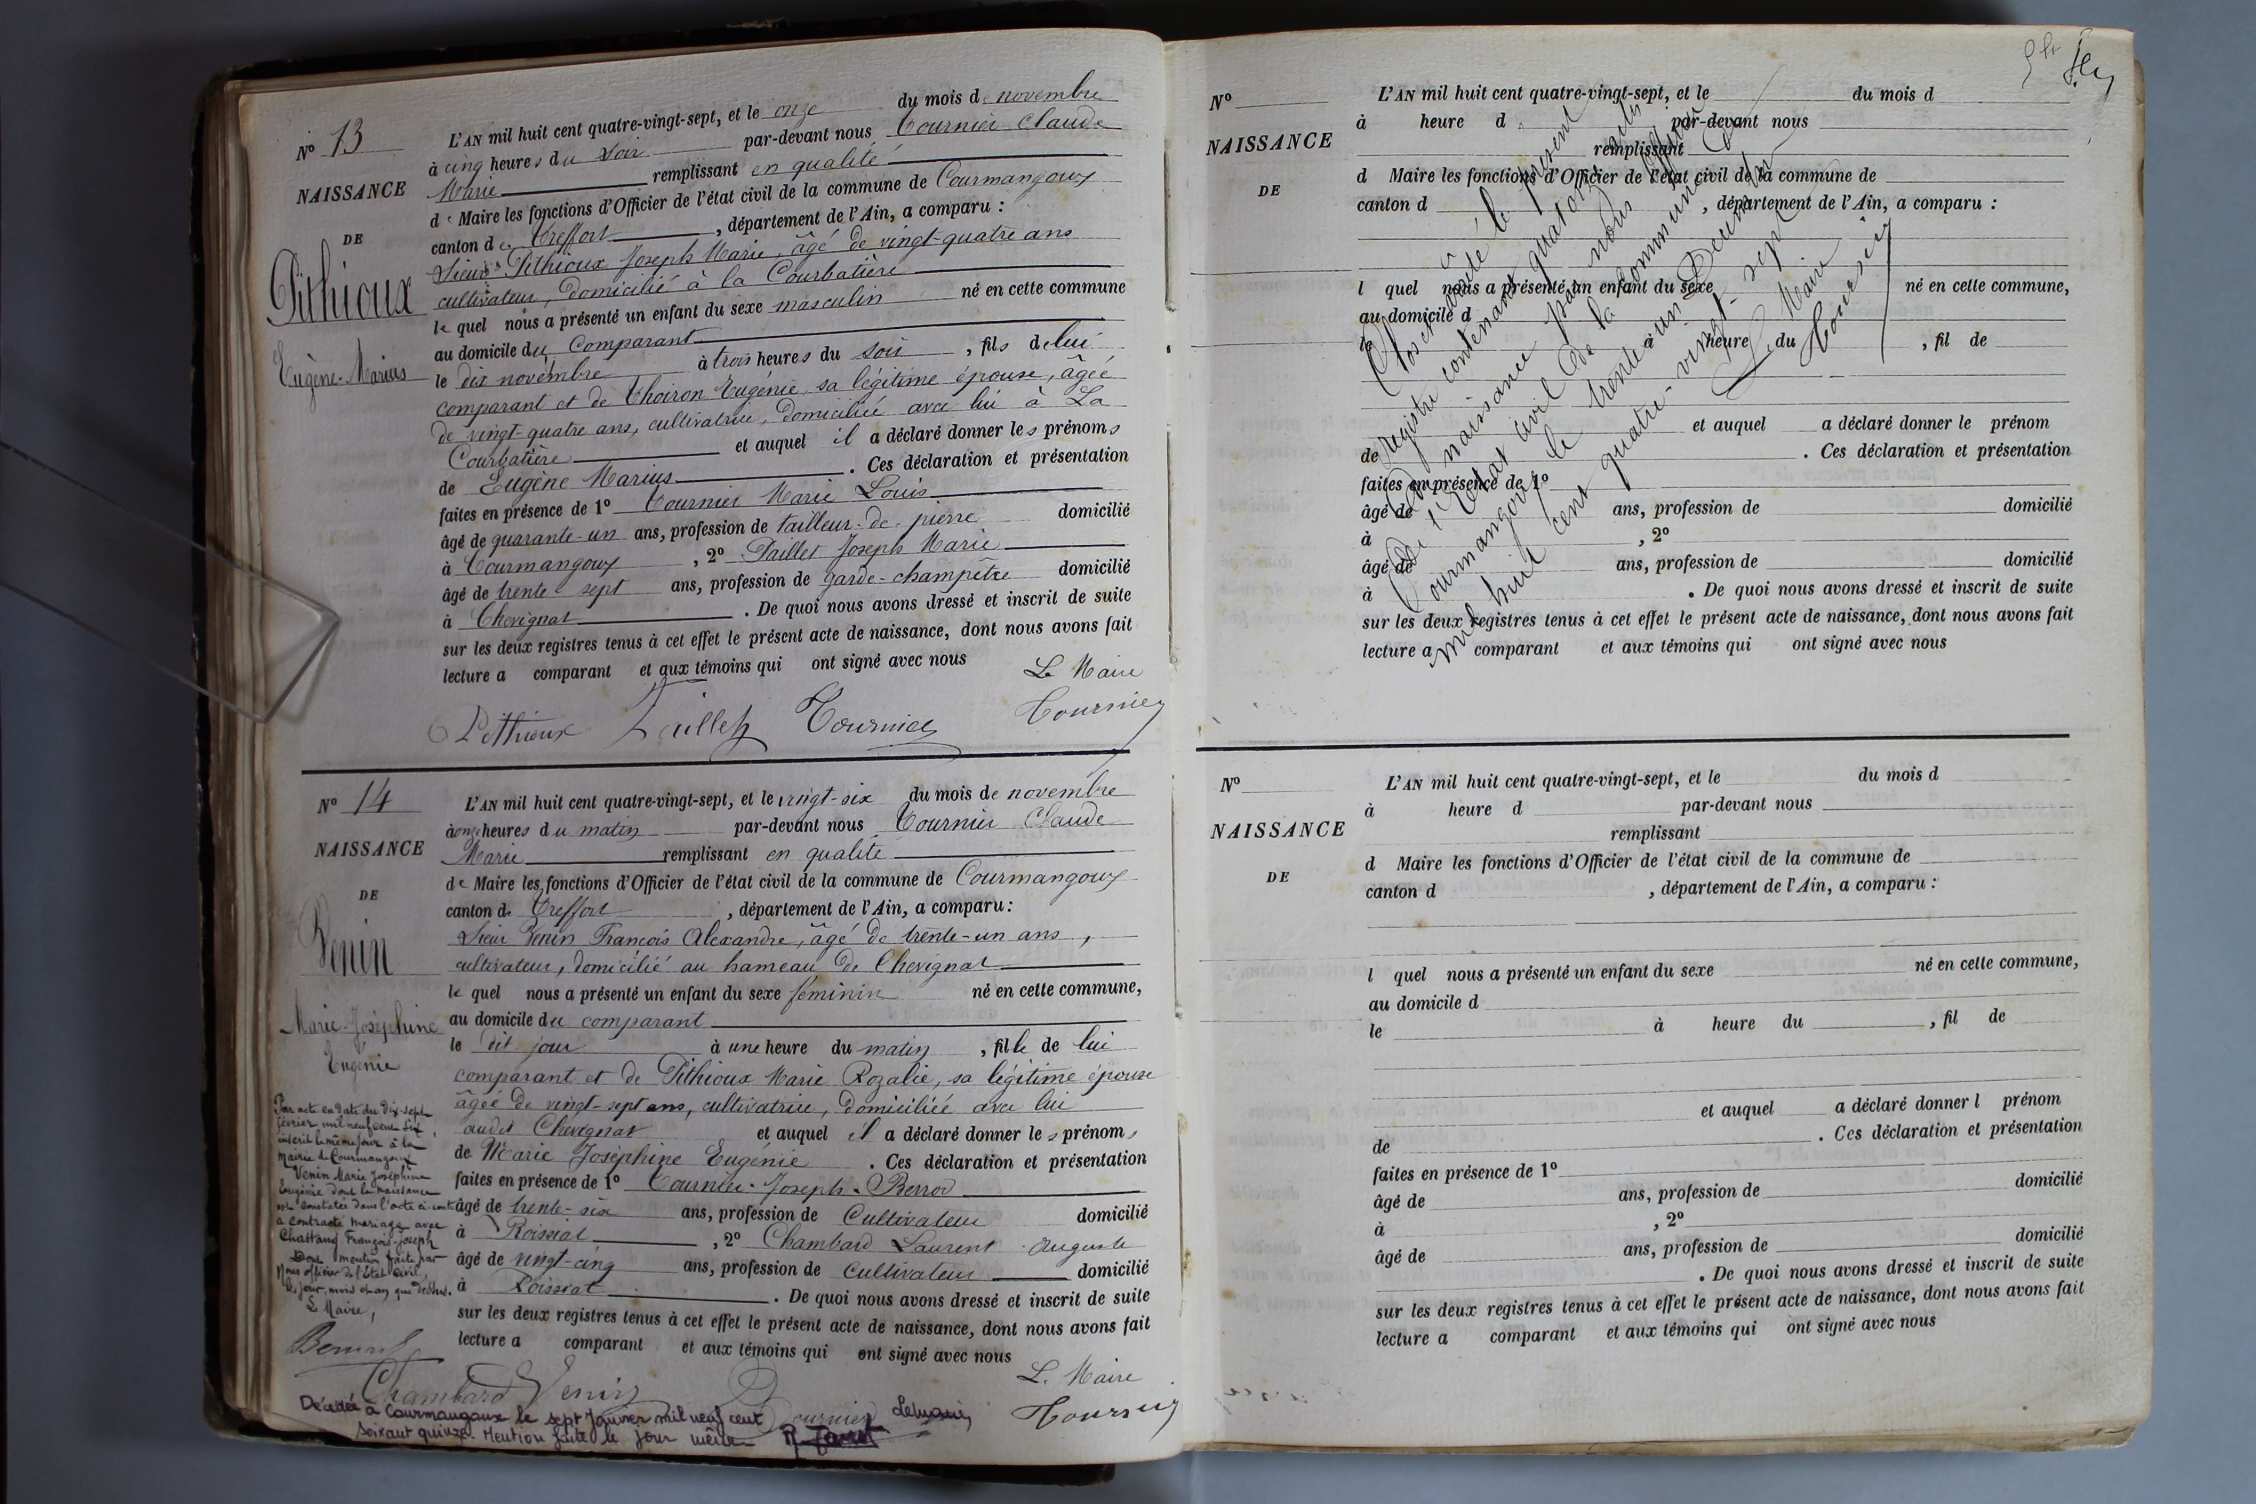 N° 13
NAISSANCE
DE
Pithioux
Eugène-Marius
L'AN mil huit cent quatre-vingt-sept, et le onze du mois de novembre
à cinq heures du soir par-devant nous Tournier Claude
Marie remplissant en qualité
de Maire les fonctions d'Officier de l'état civil de la commune de Courmangoux
canton de Treffort, département de l'Ain, a comparu :
Sieur Pithioux Joseph Marie, âgé de vingt-quatre ans
cultivateur, domicilié à la Courbatière
le quel nous a présenté un enfant du sexe masculin né en cette commune
au domicile du comparant
le dix novembre à trois heures du soir, fils de lui
comparant et de Thoiron Eugénie, sa légitime épouse, âgée
de vingt-quatre ans, cultivatrice, domiciliée avec lui à La
Courbatière et auquel il a déclaré donner les prénoms
de Eugène Marius. Ces déclaration et présentation
faites en présence de 1° Tournier Marie Louis
âgé de quarante-un ans, profession de tailleur-de-pierre domicilié
à Courmangoux, 2° Paillet Joseph Marie
âgé de trente-sept ans, profession de garde-champêtre domicilié
à Chevignat. De quoi nous avons dressé et inscrit de suite
sur les deux registres tenus à cet effet le présent acte de naissance, dont nous avons fait
lecture a comparant et aux témoins qui ont signé avec nous
Le Maire
Pithioux Paillet Tournier Tournier
N° 14
NAISSANCE
DE
Venin
Marie-Joséphine
Eugénie
Par acte en date du Dix-sept
février mil neuf cent six,
inscrit le même jour à la
mairie de Courmangoux
Venin Marie Joséphine
Eugénie dont la naissance
est constatée dans l'acte ci-contre
a contracté mariage avec
Chattang François-Joseph
Dont mention faite par
Nous officier de l'Etat Civil,
les jour, mois et an que dessus.
Le Maire,
L'AN mil huit cent quatre-vingt-sept, et le vingt-six du mois de novembre
à onze heures du matin par-devant nous Tournier Claude
Marie remplissant en qualité
de Maire les fonctions d'Officier de l'état civil de la commune de Courmangoux
canton de Treffort, département de l'Ain, a comparu :
Sieur Venin François Alexandre, âgé de trente-un ans,
cultivateur, domicilié au hameau de Chevignat
le quel nous a présenté un enfant du sexe féminin né en cette commune,
au domicile du comparant
le dit jour à une heure du matin, fille de lui
comparant et de Pithioux Marie Rozalie, sa légitime épouse
âgée de vingt-sept ans, cultivatrice, domiciliée avec lui
audit Chevignat et auquel il a déclaré donner les prénoms
de Marie Joséphine Eugénie. Ces déclaration et présentation
faites en présence de 1° Tournier-Joseph-Berrod
âgé de trente-six ans, profession de Cultivateur domicilié
à Roissiat, 2° Chambard Laurent Auguste
âgé de vingt-cinq ans, profession de cultivateur domicilié
à Roissiat. De quoi nous avons dressé et inscrit de suite
sur les deux registres tenus à cet effet le présent acte de naissance, dont nous avons fait
lecture a comparant et aux témoins qui ont signé avec nous
Le Maire
Chambard Venin Tournier Tournier
Décédée à Courmangoux le sept Janvier mil neuf cent
soixant quinze. Mention faite le jour même
Le Maire
N°
NAISSANCE
DE
L'AN mil huit cent quatre-vingt-sept, et le du mois d
à heure d par-devant nous
remplissant
d Maire les fonctions d'Officier de l'état civil de la commune de
canton d , département de l'Ain, a comparu :
l quel nous a présenté un enfant du sexe né en cette commune,
au domicile d
le à heure du , fil de
et auquel a déclaré donner le prénom
de . Ces déclaration et présentation
faites en présence de 1°
âgé de ans, profession de domicilié
à , 2°
âgé de ans, profession de domicilié
à . De quoi nous avons dressé et inscrit de suite
sur les deux registres tenus à cet effet le présent acte de naissance, dont nous avons fait
lecture a comparant et aux témoins qui ont signé avec nous
Clos et arrêté le présent
registre contenant quatorze actes
de naissance par nous officier
de l'Etat civil de la commune de
Courmangoux le trente-un Décembre
mil huit cent quatre-vingt-sept
Le Maire
Tournier
N°
NAISSANCE
DE
L'AN mil huit cent quatre-vingt-sept, et le du mois d
à heure d par-devant nous
remplissant
d Maire les fonctions d'Officier de l'état civil de la commune de
canton d , département de l'Ain, a comparu :
l quel nous a présenté un enfant du sexe né en cette commune,
au domicile d
le à heure du , fil de
et auquel a déclaré donner l prénom
de . Ces déclaration et présentation
faites en présence de 1°
âgé de ans, profession de domicilié
à , 2°
âgé de ans, profession de domicilié
. De quoi nous avons dressé et inscrit de suite
sur les deux registres tenus à cet effet le présent acte de naissance, dont nous avons fait
lecture a comparant et aux témoins qui ont signé avec nous